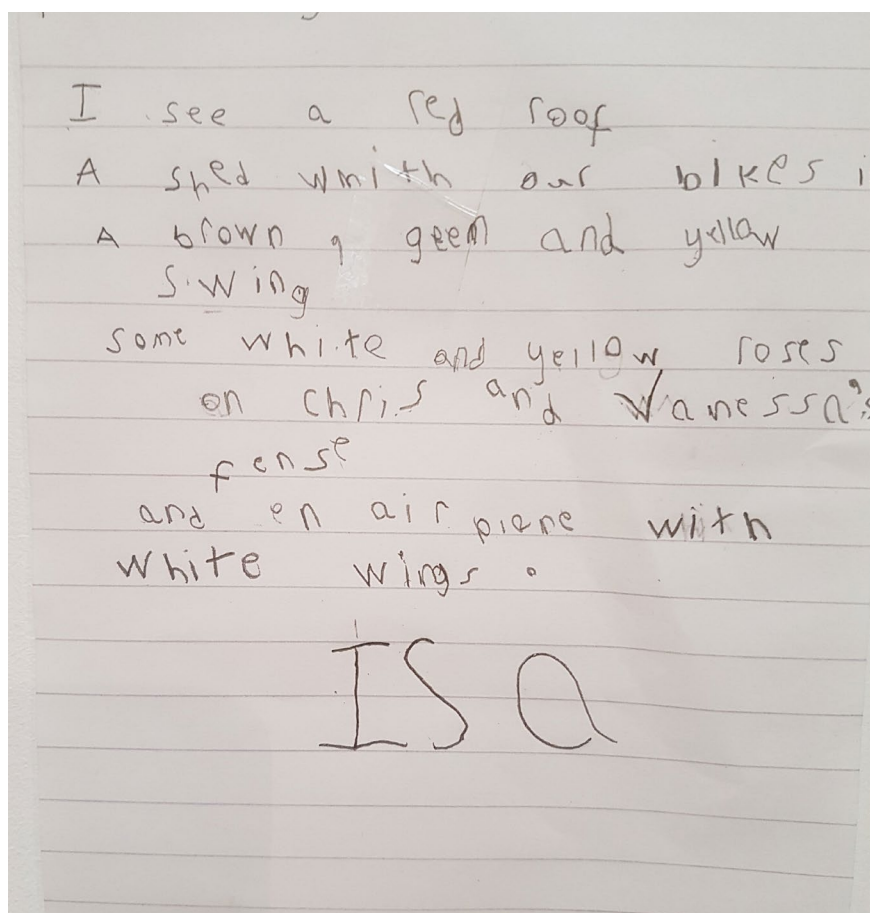 I see a red roof
A shed wmith our bikes i
A brown, geen and yellow
swing
some white and yellow roses
on Chris and Wanessa's
fense
and en air plene with
white wings.
ISA